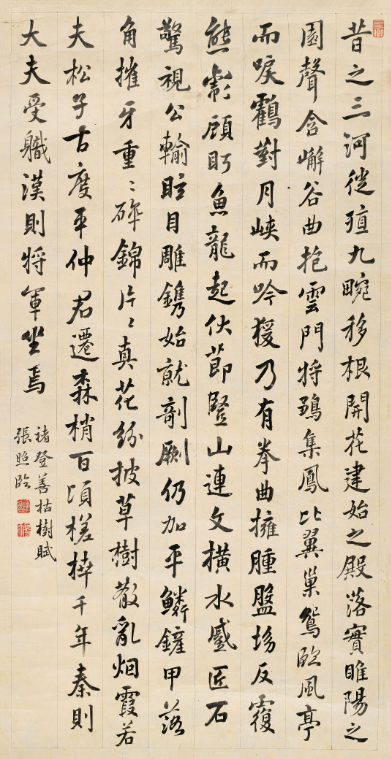 昔之三河徙殖九畹移根開花建始之殿落實睢陽之
園聲含嶰谷曲抱雲門將鶵集鳳比翼巢鴛臨風亭
而唳鶴對月峽而吟猨乃有拳曲擁腫盤坳反覆
熊彪顧盻魚龍起伏節豎山連文橫水蹙匠石
驚視公輸眩目雕鐫始就剞劂仍加平鱗鏟甲落
角摧牙重〻碎錦片〻真花紛披草樹散亂烟霞若
夫松子古度平仲君遷森梢百頃槎枿千年秦則
大夫受軄漢則將軍坐焉
褚登善枯樹賦
張照臨